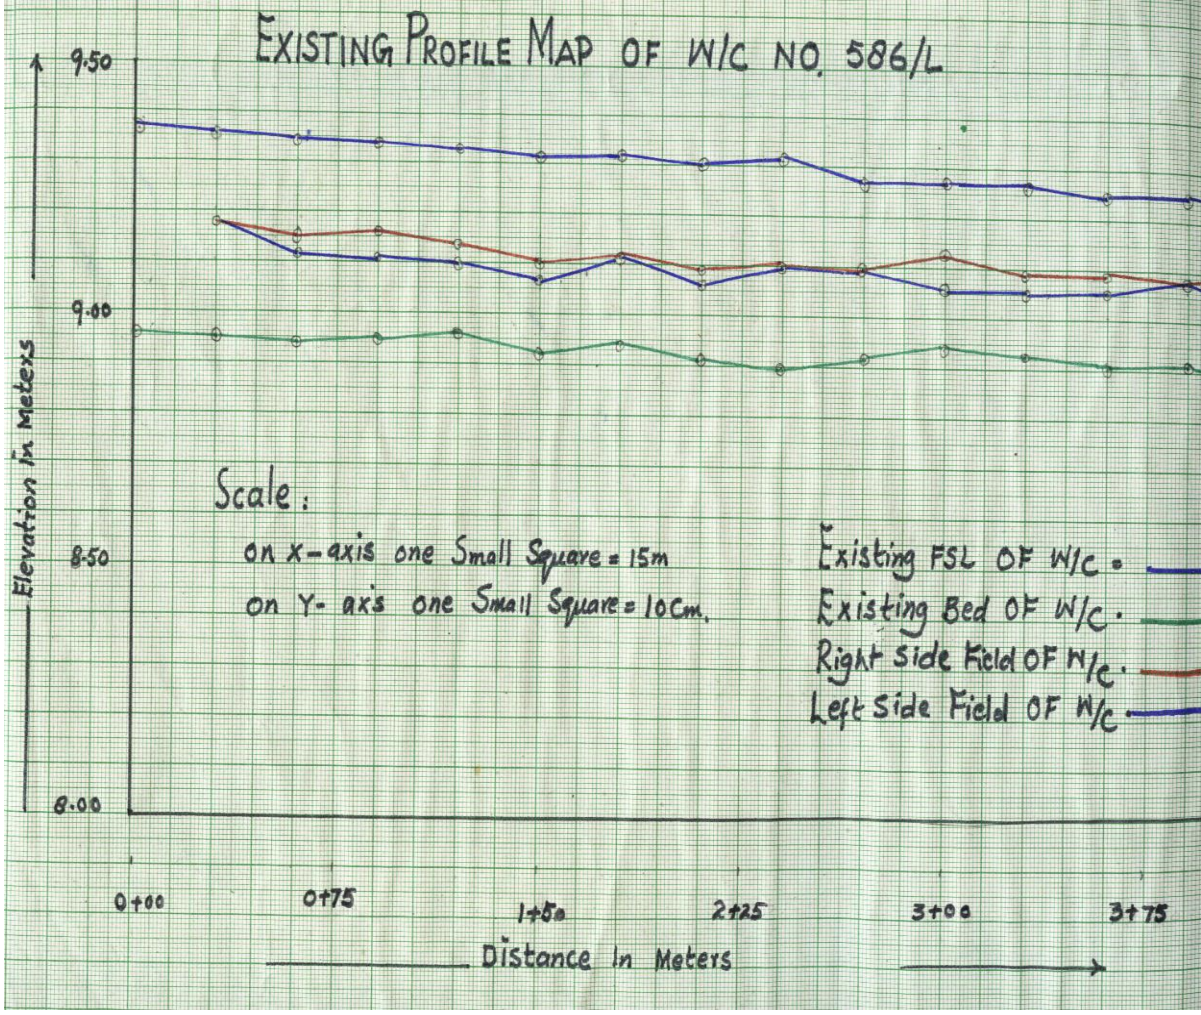 EXISTING PROFILE MAP OF W/C NO. 586/L
9.50
9.00
8.50
8.00
Elevation In Meters
Scale:
on x-axis one Small Square = 15m
on Y-axis one Small Square = 10cm.
Existing FSL OF W/C =
Existing Bed OF W/C.
Right Side Field OF W/C.
Left Side Field OF W/C.
0+00 0+75 1+50 2+25 3+00 3+75
Distance In Meters